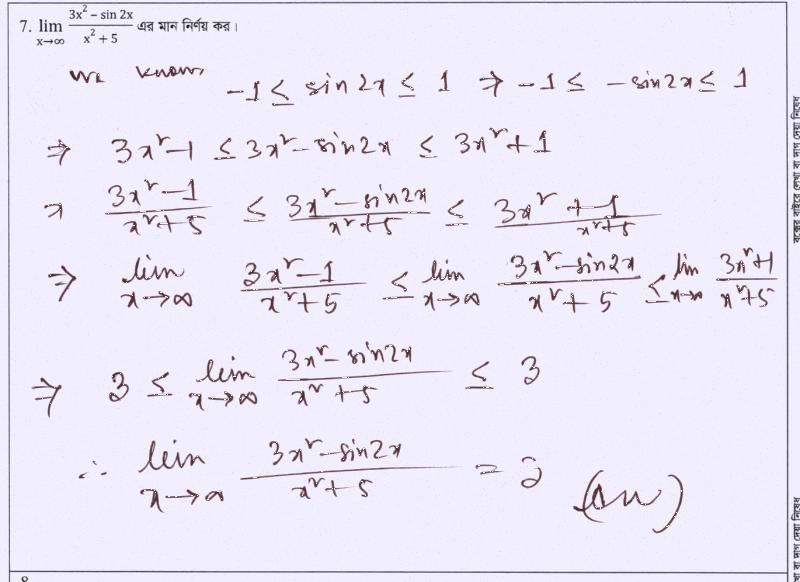 7. lim x→∞ (3x² – sin 2x)/(x² + 5) এর মান নির্ণয় কর।
We know, -1 ≤ sin 2x ≤ 1 ⇒ -1 ≤ -sin2x ≤ 1
⇒ 3x²-1 ≤ 3x²-sin2x ≤ 3x²+1
⇒ (3x²-1)/(x²+5) ≤ (3x²-sin2x)/(x²+5) ≤ (3x²+1)/(x²+5)
⇒ lim x→∞ (3x²-1)/(x²+5) ≤ lim x→∞ (3x²-sin2x)/(x²+5) ≤ lim x→∞ (3x²+1)/(x²+5)
⇒ 3 ≤ lim x→∞ (3x²-sin2x)/(x²+5) ≤ 3
∴ lim x→∞ (3x²-sin2x)/(x²+5) = 3 (Ans)